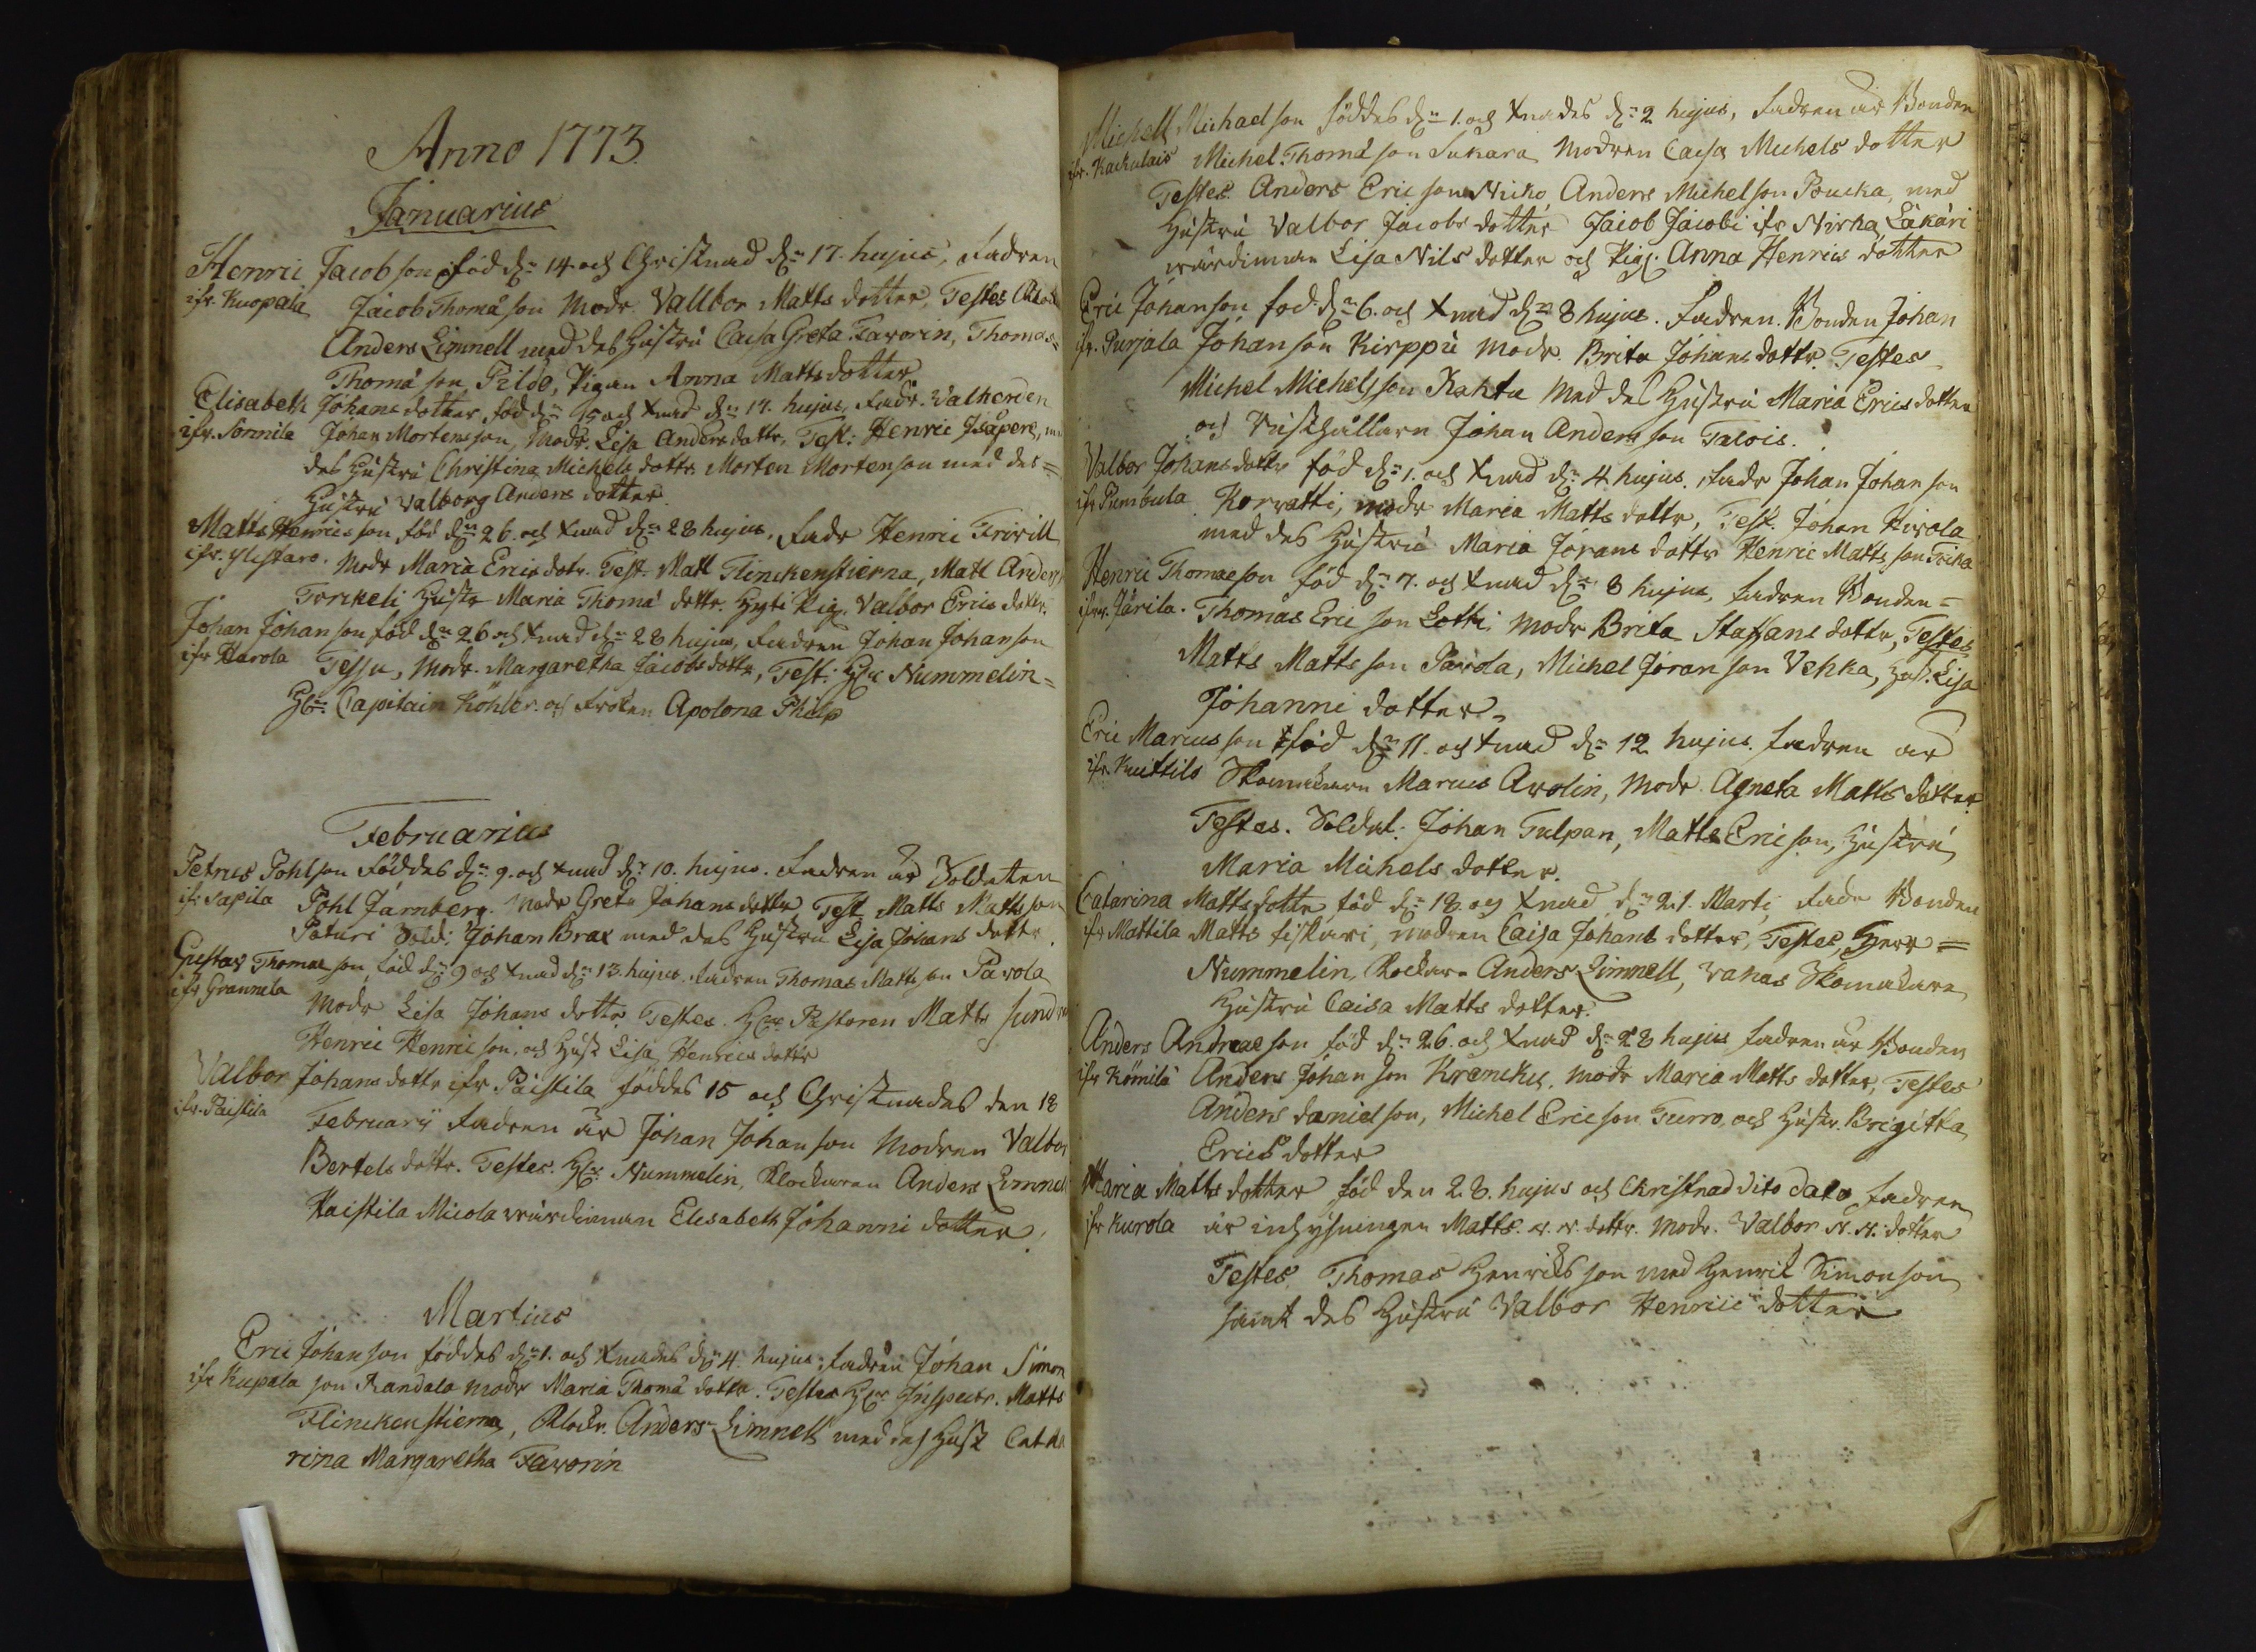 Anno 1773.
Januarius
Henric Jacobson föd d:n 14 och Christnad d:n 17. hujus, fadren
ifr. Kuopala Jacob Thomæson Modr. Vallbor Matts dotter, Testes
Anders Limnell med des Hustru Caisa Greta Favorin, Thomas=
Thomæson Pildo, Pigan Anna Mattsdotter
Elisabeth Johans dotter, föd d:n 15 och Xnad d:n 17. hujus, Fadr. Valherden
ifr. Sonnila Johan Mortensson, Modr. Lisa Anders dottr, Test: Henric Isapere,
des Hustru Christina Michels dottr. Morten Mortenson med des=
Hustru Valborg Anders dotter
Matts Henricsson föd d:n 26. och Xnad d:n 28 hujus, Fadr Henric Frivill
ifr. Ylistaro. Modr Maria Erics dotr. Test. Matt Flinckenstierna, Matt Anders
Torckeli Hustr Maria Thomæ dottr. Hyti Pig. Valbor Erics dottr.
Johan Johanson föd d:n 26 och Xnad d:n 28 hujus, Fadren Johan Johanson
ifr Harola Tessu, Modr. Margaretha Jacobs dottr, Test: Hr Nummelin=
Hr Capitain Köhler. och Fröken Apolona Phelp
Februarius
Petrus Pohlson föddes d:n 9. och Xnad d:n 10. hujus. Fadren är Soldaten
ifr Sapila Pohl Järnberg. Modr Greta Johans dottr Test Matts Mattsson
Paturi Sold: Johan Brax med des Hustru Lisa Johans dottr.
Gustav Thomæson föd d:n 9 och Xnad d:n 13. hujus. Fadren Thomas Mattson Pavola
ifr Grannila Modr Lisa Johans dottr Testes. Hr Pastoren Matts
Henric Henricson, och Hust Lisa Henrics dottr
Valbor Johans dottr ifr. Päistila föddes 15 och Christnades den 18
ifr. Päistila Februarii Fadren är Johan Johanson Modren Valbor
Bertels dottr. Testes. Hr. Nummelin, Klockaren Anders Limnell
Haistila Micola wärdinnan Elisabeth Johanni dotter.
Martius
Eric Johanson föddes d:n 1. och Xnades d:n 4. hujus; Fadren Johan Simon
ifr Kupala son Randala Modr Maria Thomæ dottr. Testes Hr Inspect. Matts
Flinckenstierna, Klockr. Anders Limnell med des Hust Catha
rina Margaretha Favorin
Michell Michaelson föddes d:n 1. och Xnades d:n 2 hujus, Fadren är Bonden
ifr. Kackulais Michel Thomæson Sukara Modren Caisa Michels dotter
Testes. Anders Ericson Nicko, Anders Michelson Poucka, med
Hustru Valbor Jacobs dotter Jacob Jacobi ifr Nirka, Läkäri
wärdinnan Lisa Nils dotter och Pig. Anna Henrics dotter
Eric Johanson föd d:n 6. och Xnad d:n 8 hujus. Fadren. Bonden Johan
ifr. Purjala Johanson Kirppu Modr. Brita Johans dottr. Testes
Michel Michelsson Rahtu Med des Hustru Maria Erics dotter
och Rusthållaren Johan Andersson Talois.
Valbor Johans dottr föd d:n 1. och Xnad d:n 4 hujus. Fadr Johan Johanson
ifr Pumbula Korvatti, Modr Maria Matts dottr, Test. Johan Hivola
med des Hustru Maria Jorans dottr Henric Mattsson Trika
Henric Thomæson föd d:n 7. och Xnad d:n 8 hujus, Fadren Bonden=
ifr. Järila. Thomas Ericson Lotti, Modr Brita Staffans dottr, Testes
Matts Mattsson Pavola, Michel Joranson Vehka, Hust. Lisa
Johanni dotter.
Eric Marcusson föd d:n 11. och Xnad d:n 12 hujus. Fadren är
ifr. Knuttila Skomakaren Marcus Avolin, Modr. Agneta Matts dotter
Testes. Soldat: Johan Tulpan, Matts Ericson, Hustru
Maria Michels dotter.
Catarina Matts dottr föd d:n 18. och Xnad d:n 21. Marti, Fadr Bonden
ifr Mattila Matts Fiskari, Modren Caisa Johans dotter, Testes, Herr=
Nummelin, Klockar. Anders Limnell, Vakas Skomakare
Hustru Caisa Matts dotter.
Anders Andreæson föd d:n 26. och Xnad d:n 28 hujus Fadren är Bonden
ifr Kömilä Anders Johanson Krenckis. Modr Maria Matts dotter, Testes
Anders Danielson, Michel Ericson Turro, och Hustr. Brigitta
Erics dotter
Maria Matts dotter föd den 28. hujus och Christnad dito dato Fadren
ifr Kurola är inhysningen Matts. N. N. dottr. Modr. Valbor N. N. dotter
Testes, Thomas Henricks son med Henrik Simonson
samt des Hustru Valbor Henric dotter